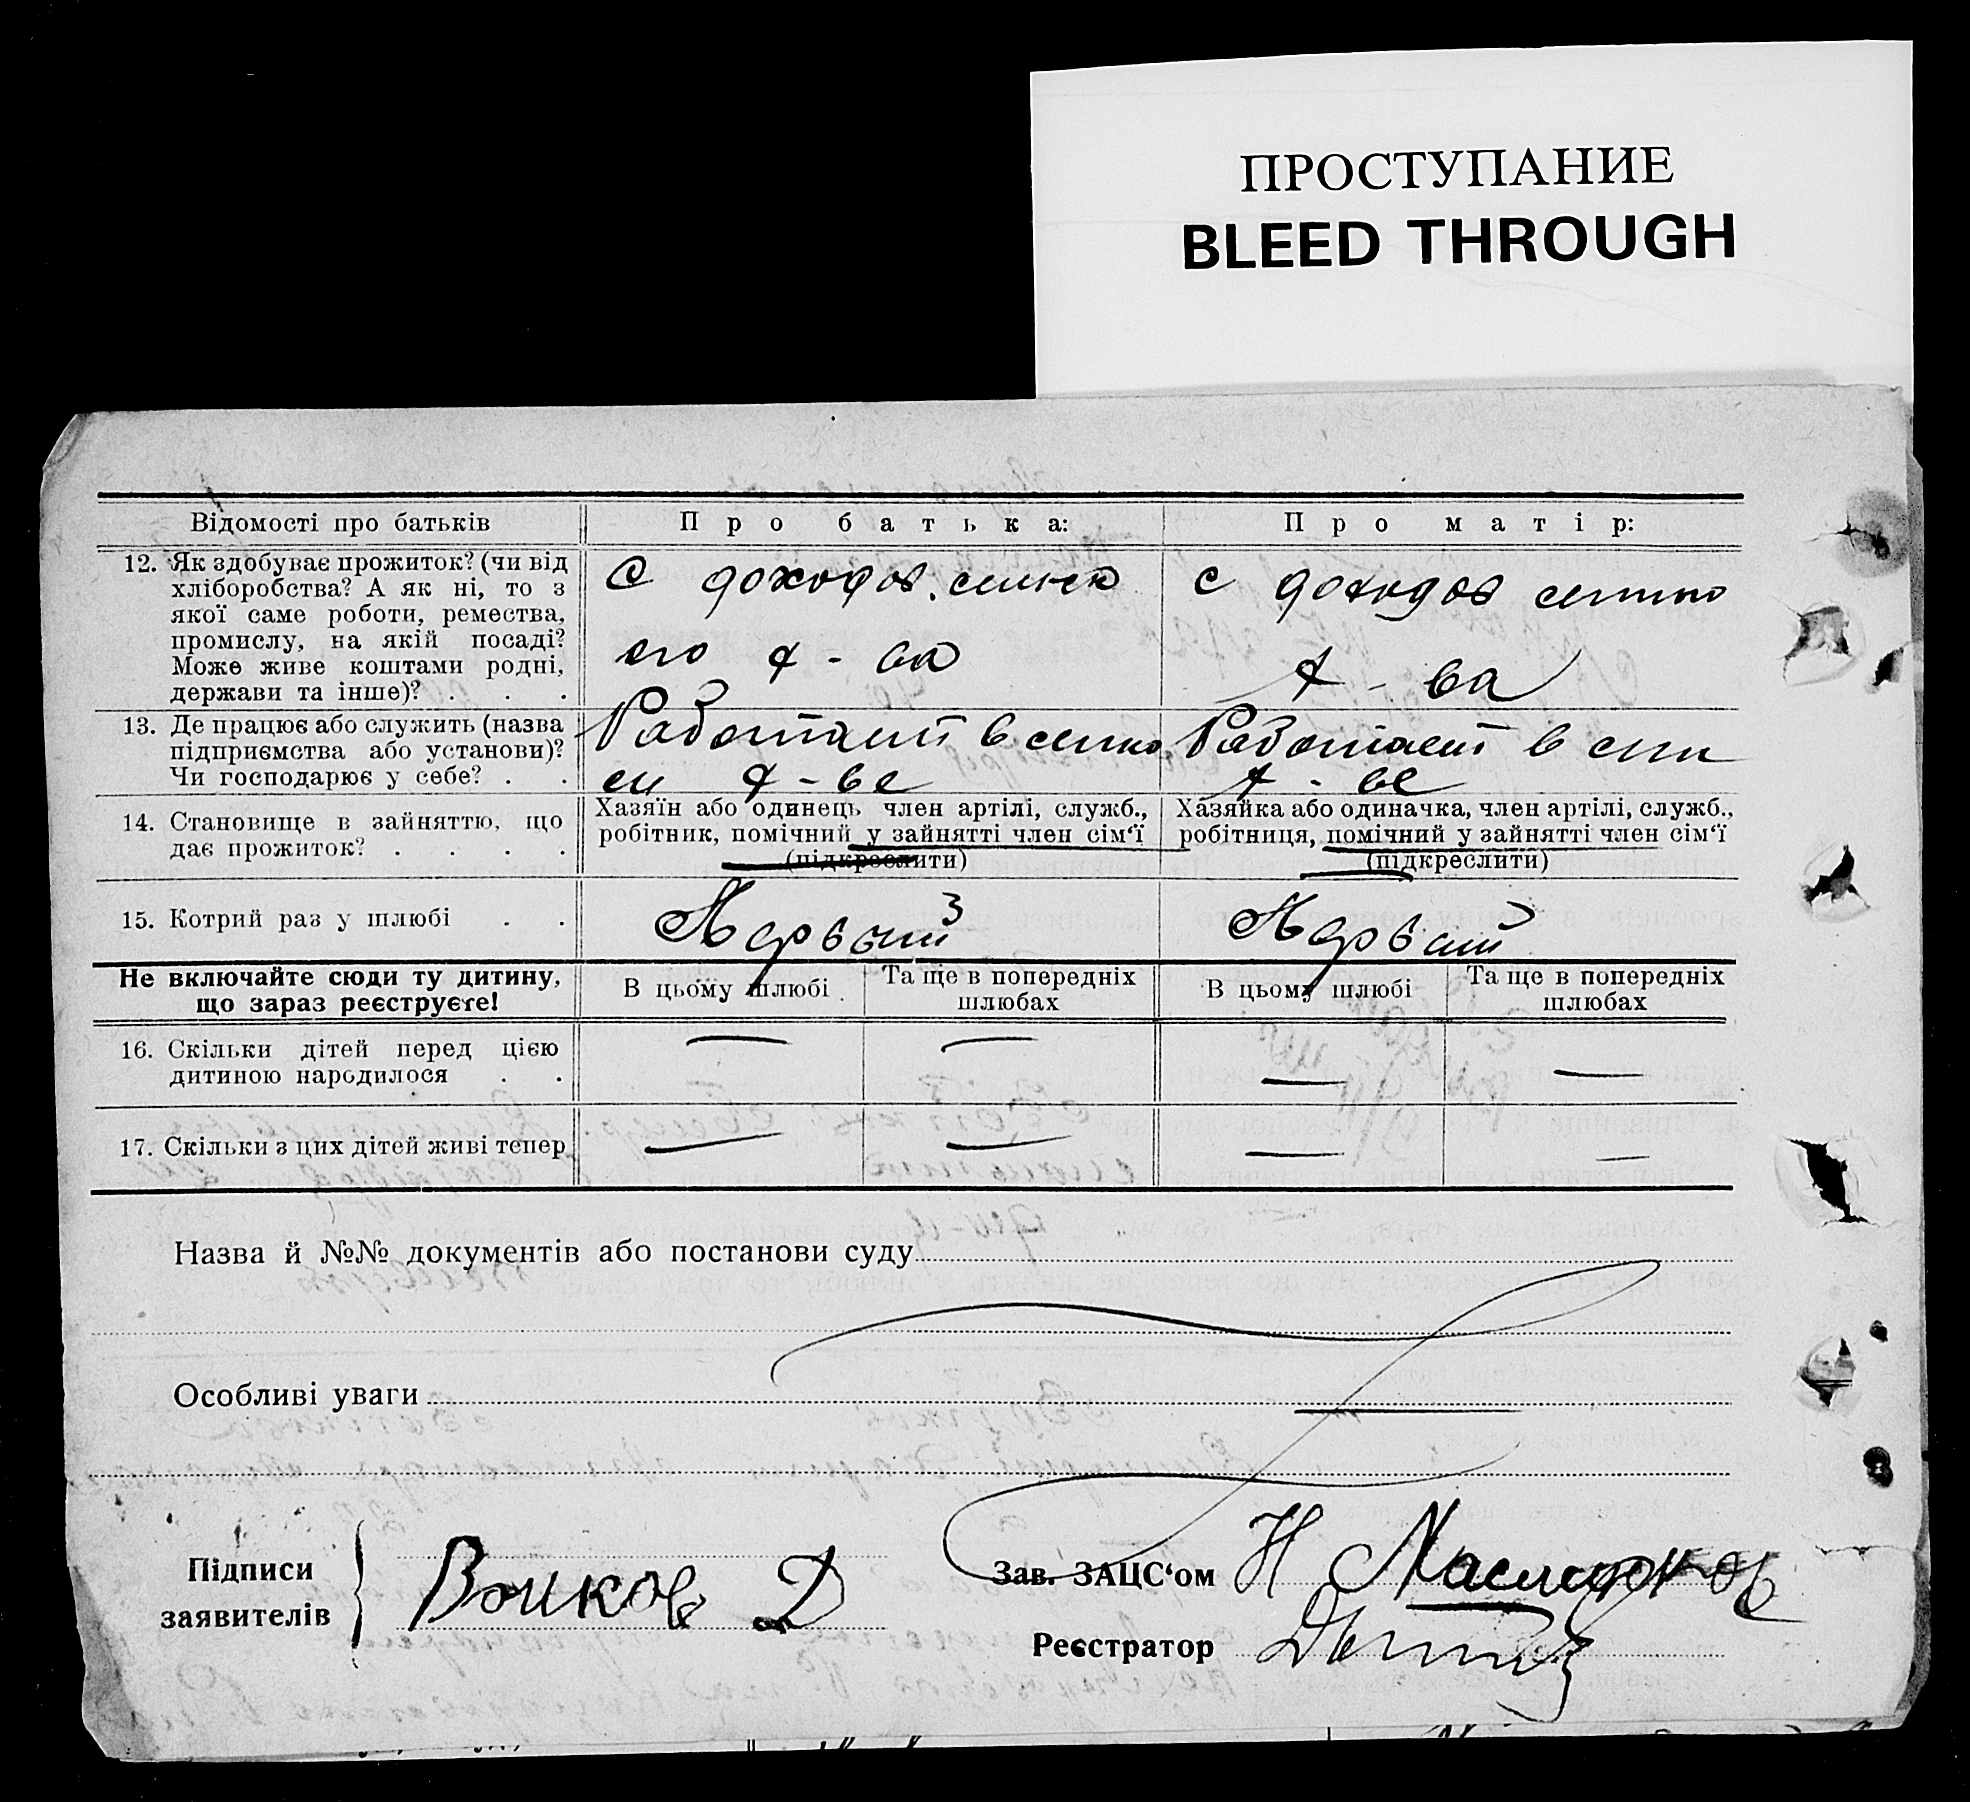 ПРОСТУПАНИЕ
BLEED THROUGH
Відомості про батьків
Про батька:
Про матір:
12. Як здобуває прожиток? (чи від
хліборобства? А як ні, то з
якої саме роботи, ремества,
промислу, на якій посаді?
Може живе коштами родні,
держави та інше)? . . .
С доходов сельск
ого х-ва
с доходов
х-ва
13. Де працює або служить (назва
підприємства або установи)?
Чи господарює у себе? . .
Работает в
х-ве
Работает в
х-ве
14. Становище в зайняттю, що
дає прожиток? . . . .
Хазяїн або одинець член артілі, служб.,
робітник, помічний у зайнятті член сім‘ї
(підкреслити)
Хазяйка або одиначка, член артілі, служб.,
робітниця, помічний у зайнятті член сім‘ї
(підкреслити)
15. Котрий раз у шлюбі . .
Первый
Первый
Не включайте сюди ту дитину,
що зараз реєструєте!
В цьому шлюбі
Та ще в попередніх
шлюбах
В цьому шлюбі
Та ще в попередніх
шлюбах
16. Скільки дітей перед цією
дитиною народилося . .
— — — —
17. Скільки з цих дітей живі тепер
— — — —
Назва й №№ документів або постанови суду
Особливі уваги —
Підписи
заявителів
Зав. ЗАЦС‘ом Н
Реєстратор